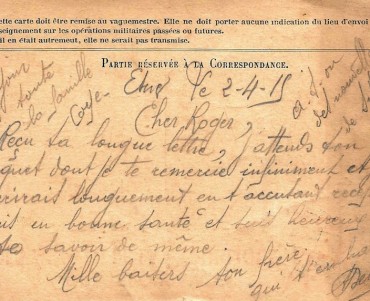 cette carte doit être remise au vaguemestre. Elle ne doit porter aucune indication du lieu d'envoi
nseignement sur les opérations militaires passées ou futures.
il en était autrement, elle ne serait pas transmise.
PARTIE RÉSERVÉE A LA CORRESPONDANCE.
le 2-4-15
Cher Roger,
Reçu ta longue lettre, j'attends ton
quet dont je te remercie infiniment et
crirais longuement en t'accusant rece
is en bonne santé et suis heureux
te savoir de même.
Mille baisers ton frère
qui t'en
toute
la famille